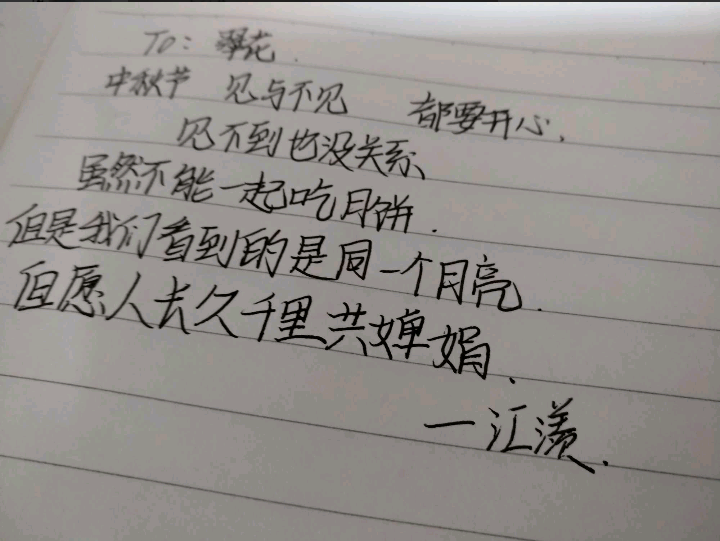 To: 翠花.
中秋节 见与不见 都要开心.
见不到也没关系、
虽然不能一起吃月饼.
但是我们看到的是同一个月亮.
但愿人长久千里共婵娟.
一汇羡.